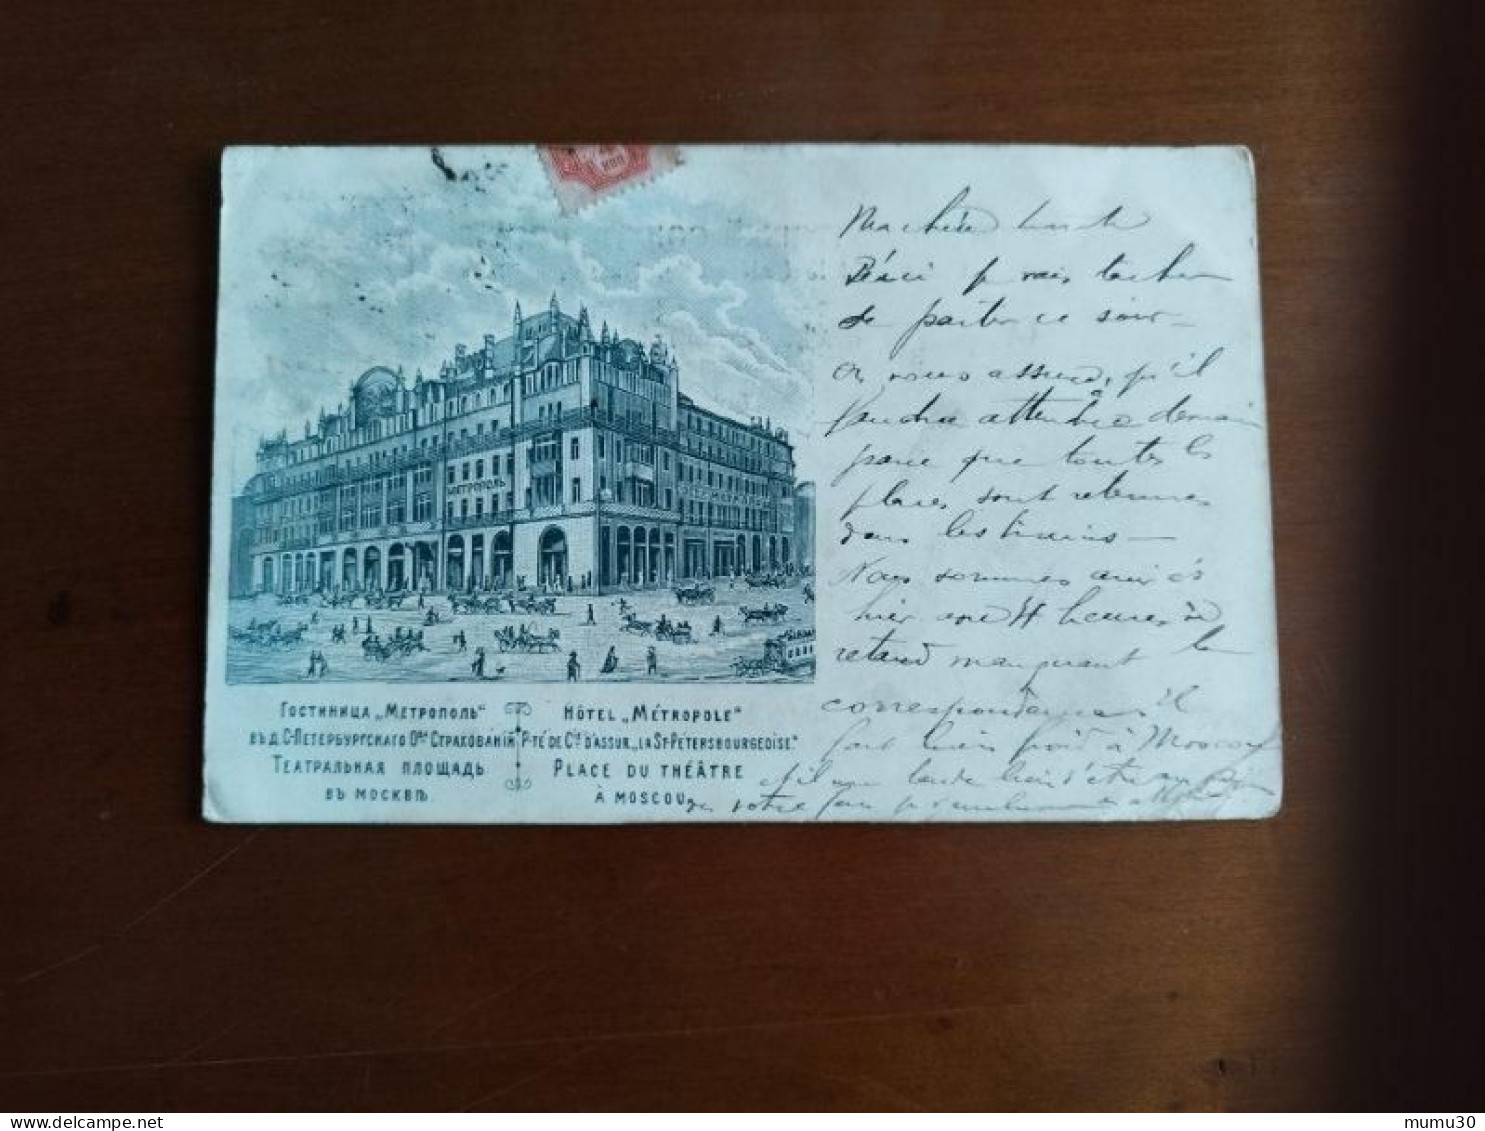 МЕТРОПОЛЬ
ГОСТИННИЦА „МЕТРОПОЛЬ“
ВЪ Д. С-ПЕТЕРБУРГСКАГО Об-ва СТРАХОВАНІЙ
ТЕАТРАЛЬНАЯ ПЛОЩАДЬ
ВЪ МОСКВѢ.
HÔTEL „MÉTROPOLE“
P-TÉ DE Cie D'ASSUR. „LA ST-PETERSBOURGEOISE.“
PLACE DU THÉÂTRE
À MOSCOU
Ma chère tante
je vais tacher
de partir ce soir —
On nous assure, qu'il
faudra attendre demain
parce que toutes les
places sont retenues
dans les trains —
Nous sommes arrivés
hier avec 4 heures de
retard manquant la
correspondance, il
fait bien froid à Moscou
de votre
mumu30
www.delcampe.net